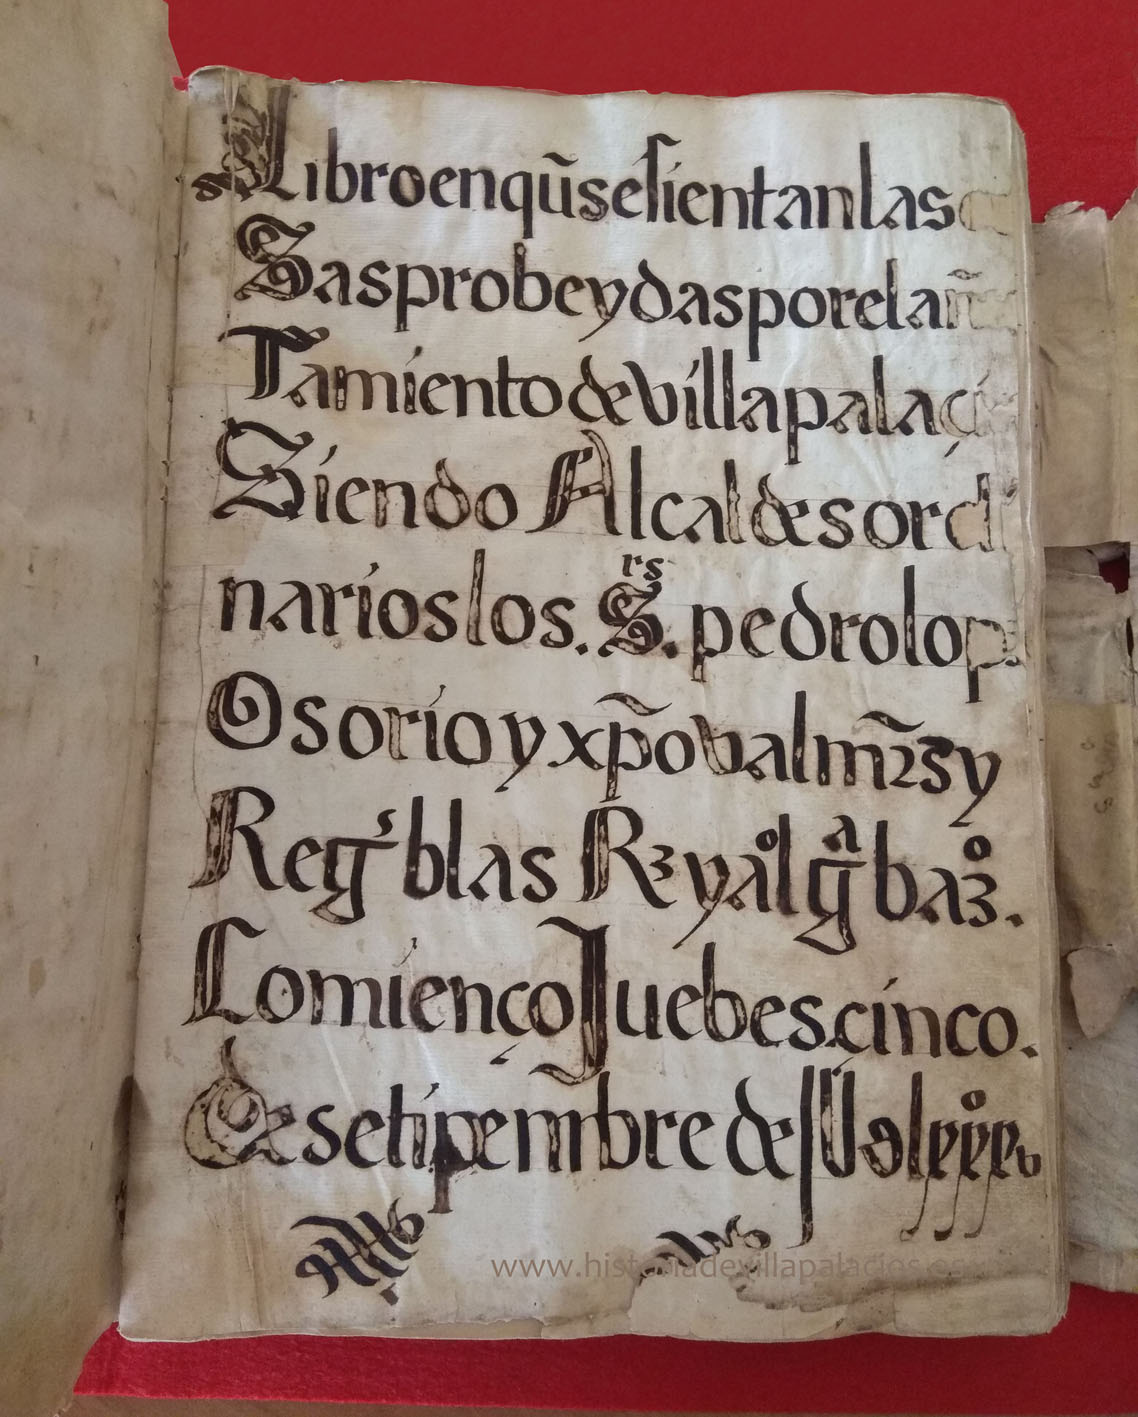 Libro en qũ se sientan las c
Sas probeydas por el añ
Tamiento de villapalaci
Siendo Alcaldes ordi
narios los. S.rs pedro lop.
Osorio y xp̃o val mr̃s y
Reg.s blas Rz y al.o g.a baz.o
Començo Juebes cinco.
De setipembre de
www.historiadevillapalacios.es